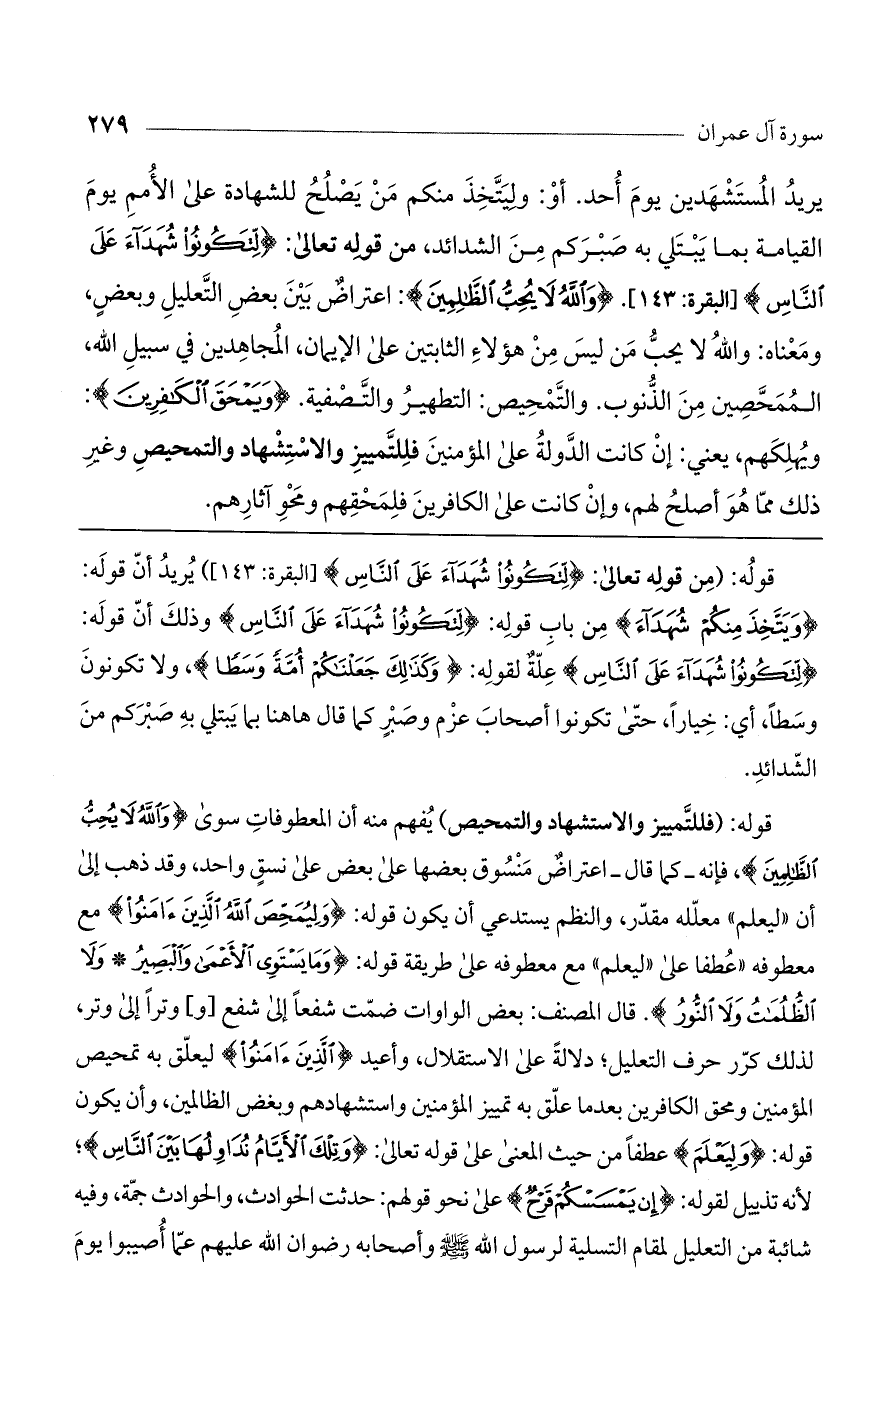 سورة آل عمران ٢٧٩
يريدُ المُستَشْهَدين يومَ أُحد. أوْ: ولِيَتَّخِذَ منكم مَنْ يَصْلُحُ للشهادة علىٰ الأُممِ يومَ
القيامـة بمـا يَبْـتَلي به صَبْـرَكم مِـنَ الشدائد، من قولِه تعالىٰ: ﴿لِّتَكُونُوا۟ شُهَدَآءَ عَلَى
ٱلنَّاسِ﴾ [البقرة: ١٤٣]. ﴿وَٱللَّهُ لَا يُحِبُّ ٱلظَّٰلِمِينَ﴾: اعتراضٌ بَيْنَ بعضِ التَّعليلِ وبعضٍ،
ومَعْناه: واللهُ لا يحبُّ مَن ليسَ مِنْ هؤلاءِ الثابتين علىٰ الإيمان، المُجاهِدين في سبيلِ الله،
الـمُمَحَّصِين مِنَ الذُّنوب. والتَّمْحِيص: التطهيـرُ والتَّـصْفية. ﴿وَيَمْحَقَ ٱلْكَٰفِرِينَ﴾:
ويُهلِكَهم، يعني: إنْ كانت الدَّولةُ علىٰ المؤمنينَ فلِلتَّمييزِ والاسْتِشْهاد والتمحيصِ وغيرِ
ذلك ممّا هُوَ أصلحُ لهم، وإنْ كانت علىٰ الكافرينَ فلِمَحْقِهم ومَحْوِ آثارِهم.
قولُه: (مِن قولِه تعالىٰ: ﴿لِّتَكُونُوا۟ شُهَدَآءَ عَلَى ٱلنَّاسِ﴾ [البقرة: ١٤٣]) يُريدُ أنّ قولَه:
﴿وَيَتَّخِذَ مِنكُمْ شُهَدَآءَ﴾ مِن بابِ قولِه: ﴿لِّتَكُونُوا۟ شُهَدَآءَ عَلَى ٱلنَّاسِ﴾ وذلكَ أنّ قولَه:
﴿لِّتَكُونُوا۟ شُهَدَآءَ عَلَى ٱلنَّاسِ﴾ عِلّةٌ لقولِه: ﴿وَكَذَٰلِكَ جَعَلْنَٰكُمْ أُمَّةً وَسَطًا﴾، ولا تكونونَ
وسَطاً، أي: خِياراً، حتّىٰ تكونوا أصحابَ عزْم وصَبْرٍ كما قال هاهنا بما يَبتلي بهِ صَبْرَكم منَ
الشّدائدِ.
قوله: (فللتَّمييز والاستشهاد والتمحيص) يُفهم منه أن المعطوفاتِ سوىٰ ﴿وَٱللَّهُ لَا يُحِبُّ
ٱلظَّٰلِمِينَ﴾، فإنه ـ كما قال ـ اعتراضٌ مَنْسُوق بعضها علىٰ بعض علىٰ نسقٍ واحد، وقد ذهب إلىٰ
أن «ليعلم» معلّله مقدّر، والنظم يستدعي أن يكون قوله: ﴿وَلِيُمَحِّصَ ٱللَّهُ ٱلَّذِينَ ءَامَنُوا۟﴾ مع
معطوفه «عُطفا علىٰ «ليعلم» مع معطوفه علىٰ طريقة قوله: ﴿وَمَا يَسْتَوِى ٱلْأَعْمَىٰ وَٱلْبَصِيرُ * وَلَا
ٱلظُّلُمَٰتُ وَلَا ٱلنُّورُ﴾. قال المصنف: بعض الواوات ضمّت شفعاً إلىٰ شفع [و] وتراً إلىٰ وتر،
لذلك كرّر حرف التعليل؛ دلالةً علىٰ الاستقلال، وأعيد ﴿ٱلَّذِينَ ءَامَنُوا۟﴾ ليعلّق به تمحيص
المؤمنين ومحق الكافرين بعدما علّق به تمييز المؤمنين واستشهادهم وبغض الظالمين، وأن يكون
قوله: ﴿وَلِيَعْلَمَ﴾ عطفاً من حيث المعنىٰ علىٰ قوله تعالىٰ: ﴿وَتِلْكَ ٱلْأَيَّامُ نُدَاوِلُهَا بَيْنَ ٱلنَّاسِ﴾؛
لأنه تذييل لقوله: ﴿إِن يَمْسَسْكُمْ قَرْحٌ﴾ علىٰ نحو قولهم: حدثت الحوادث، والحوادث جمّة، وفيه
شائبة من التعليل لمقام التسلية لرسول الله ﷺ وأصحابه رضوان الله عليهم عمّا أُصيبوا يومَ